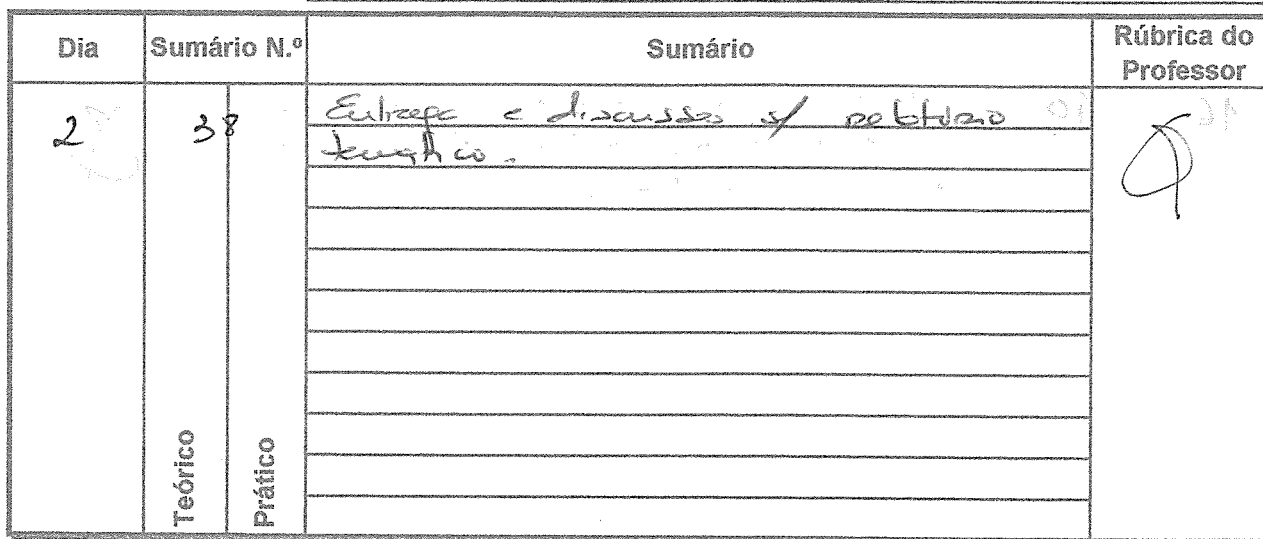 Dia Sumário N.º Sumário Rúbrica do Professor
2 38 Entrega e discussão s/ relatório
temático.
Teórico Prático